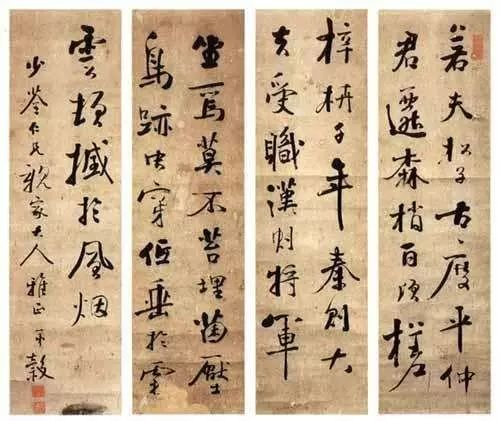 若夫松子古度平仲
君遷森梢百頃槎
梓枿千年秦則大
夫受職漢則將軍
坐焉莫不苔埋菌壓
鳥跡虫穿低垂於霜
露頓撼於風烟
少荃仁兄親家大人雅正